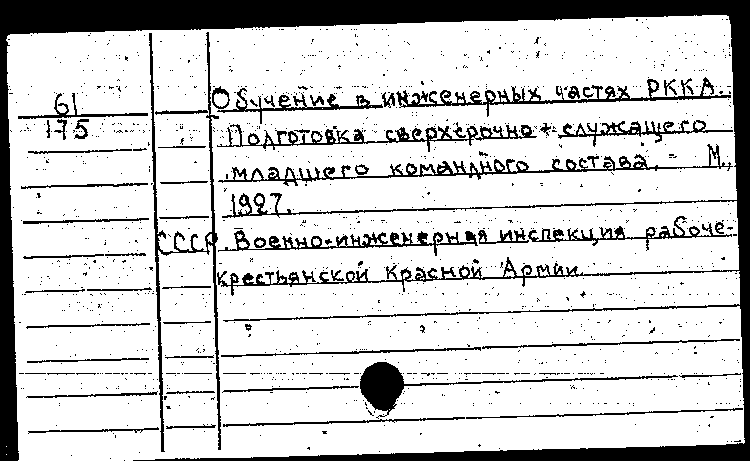 61
175
Обучение в инженерных частях РККА.
Подготовка сверхсрочно-служащего
младшего командного состава. - М.,
1927.
СССР. Военно-инженерная инспекция рабоче-
крестьянской Красной Армии.